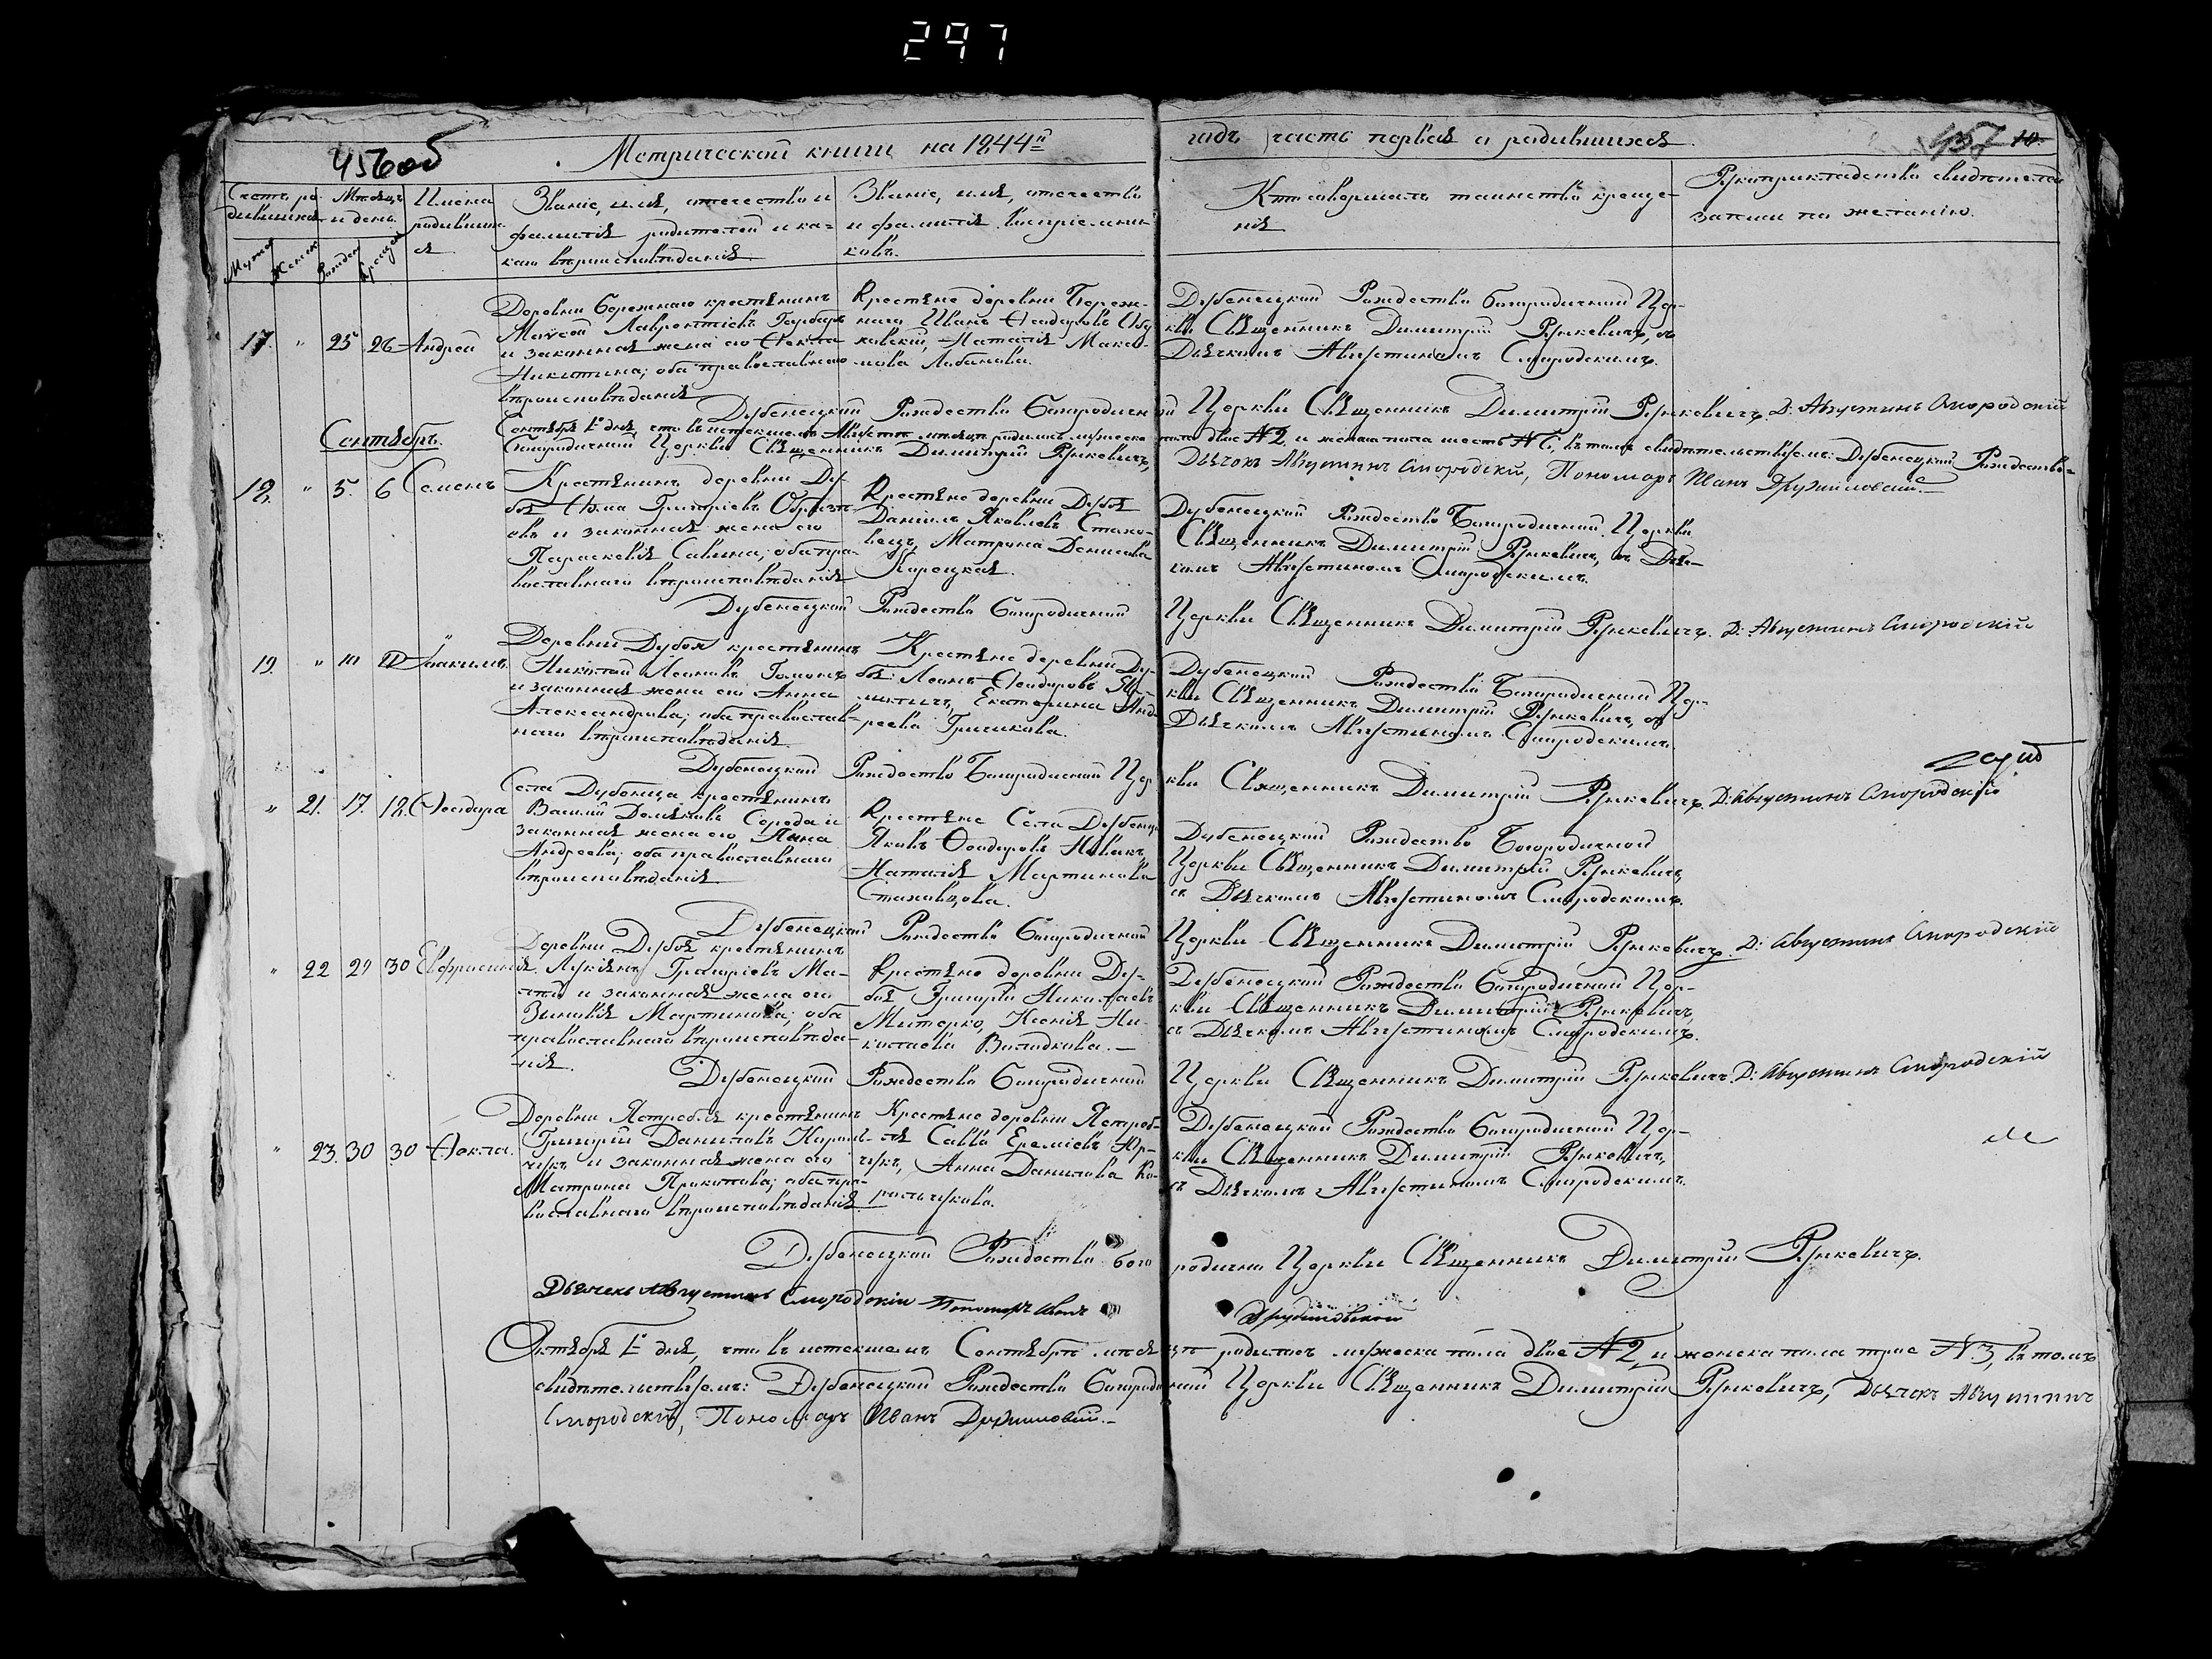 297
456об
Метрической книги на 1844й
годъ часть первая о родившихся
457 10
Счетъ ро-
дившихся
Мужеск
Женск
Месяцъ
и день
Рожден
Крещен
Имена
родивших
ся
Званіе, имя, отечество и
фамилія родителей и ка-
кого вѣроисповѣданія
Званіе, имя, отечество
и фамилія воспріемни-
ковъ.
Кто совершалъ таинство креще-
нія
Рукоприкладство свидѣтелей
записи по желанію.
17. " 25 26 Андрей
Деревни Бережнаго крестьянинъ
Моисей Лаврентіевъ
и законная жена его Өекла
Никитина; оба православнаго
вѣроисповѣданія
Крестьяне деревни Береж-
наго Иванъ Өеодоровъ
Наталія Макси-
мова Лобанова.
Дубенецкій Рождество Богородичной Цер-
кви Священникъ Димитрій Ручкевичъ, съ
Дьячкомъ Августиномъ Смородскимъ.
Дубенецкій Рождество Богородичной Церкви Священникъ Димитрій Ручкевичъ Д: Августинъ Смородскій
Сентября 1го дня, что въ истекшемъ Августѣ месяцѣ родилось мужеска пола двое №2, и женска пола шесть №6, въ томъ свидѣтельствуемъ: Дубенецкій Рождество-
Богородичной Церкви Священникъ Димитрій Ручкевичъ, Дьячокъ Августинъ Смородскій, Пономарь Иванъ Дружиловскій
Сентябрь.
18. " 5. 6 Семенъ
Крестьянинъ деревни Ду-
боя Өома Григоріевъ
и законная жена его
Параскевія Савина; оба пра-
вославнаго вѣроисповѣданія
Крестьяне деревни Дубоя
Даніилъ Яковлевъ Стахо-
вецъ, Матрона Денисова
Корецкая.
Дубенецкій Рождество Богородичной Церкви
Священникъ Димитрій Ручкевичъ, съ Дьяч-
комъ Августиномъ Смородскимъ.
Дубенецкій Рождество Богородичной Церкви Священникъ Димитрій Ручкевичъ. Д: Августинъ Смородскій
19. " 10 Іоакимъ
Деревни Дубоя крестьянинъ
Николай Леоновъ
и законная жена его Анна
Александрова; оба православ-
наго вѣроисповѣданія
Крестьяне деревни Ду-
боя: Леонъ Өеодоровъ
Екатерина Анд-
реева Гричикова.
Дубенецкій Рождество Богородичной Цер-
кви Священникъ Димитрій Ручкевичъ, съ
Дьячкомъ Августиномъ Смородскимъ.
Дубенецкій Рождество Богородичной Церкви Священникъ Димитрій Ручкевичъ. Д: Августинъ Смородскій
" 21. 17. 18. Өеодора
Села Дубенца крестьянинъ
Василій Демьяновъ Середа и
законная жена его Анна
Андреева; оба православнаго
вѣроисповѣданія
Крестьяне Села Дубенца
Яковъ Өеодоровъ Новикъ,
Наталія Мартинова
Стаховцова.
Дубенецкій Рождество Богородичной
Церкви Священникъ Димитрій Ручкевичъ,
съ Дьячкомъ Августиномъ Смородскимъ.
Дубенецкій Рождество Богородичной Церкви Священникъ Димитрій Ручкевичъ. Д: Августинъ Смородскій
" 22 29 30 Евфросинія
Деревни Дубоя крестьянинъ
Лукіянъ Григоріевъ
и законная жена его
Зиновія Мартинова; оба
православнаго вѣроисповѣда-
нія.
Крестьяне деревни Ду-
боя Григорій Николаевъ
Митарко, Ксенія Ни-
колаева Володкова.
Дубенецкій Рождество Богородичной Цер-
кви Священникъ Димитрій Ручкевичъ,
съ Дьячкомъ Августиномъ Смородскимъ.
Дубенецкій Рождество Богородичной Церкви Священникъ Димитрій Ручкевичъ. Д: Августинъ Смородскій
" 23. 30 30 Өекла.
Деревни Ястребля крестьянинъ
Григорій Даниловъ Король-
чукъ и законная жена его
Матрона Прокопова; оба пра-
вославнаго вѣроисповѣданія
Крестьяне деревни Ястреб-
ля Савва Ереміевъ Юр-
чукъ, Анна Данилова Ко-
рольчукова.
Дубенецкій Рождество Богородичной Цер-
кви Священникъ Димитрій Ручкевичъ,
съ Дьячкомъ Августиномъ Смородскимъ.
Дубенецкій Рождество Богородично Церкви Священникъ Димитрій Ручкевичъ.
Дьячекъ Августинъ Смородскій Пономарь Иванъ Дружиловскій
Октября 1го дня, что въ истекшемъ Сентябрѣ месяцѣ родилось мужеска пола двое №2, и женска пола трое №3, въ томъ
свидѣтельствуемъ: Дубенецкій Рождество Богородичной Церкви Священникъ Димитрій Ручкевичъ, Дьячекъ Августинъ
Смородскій, Пономарь Иванъ Дружиловскій.